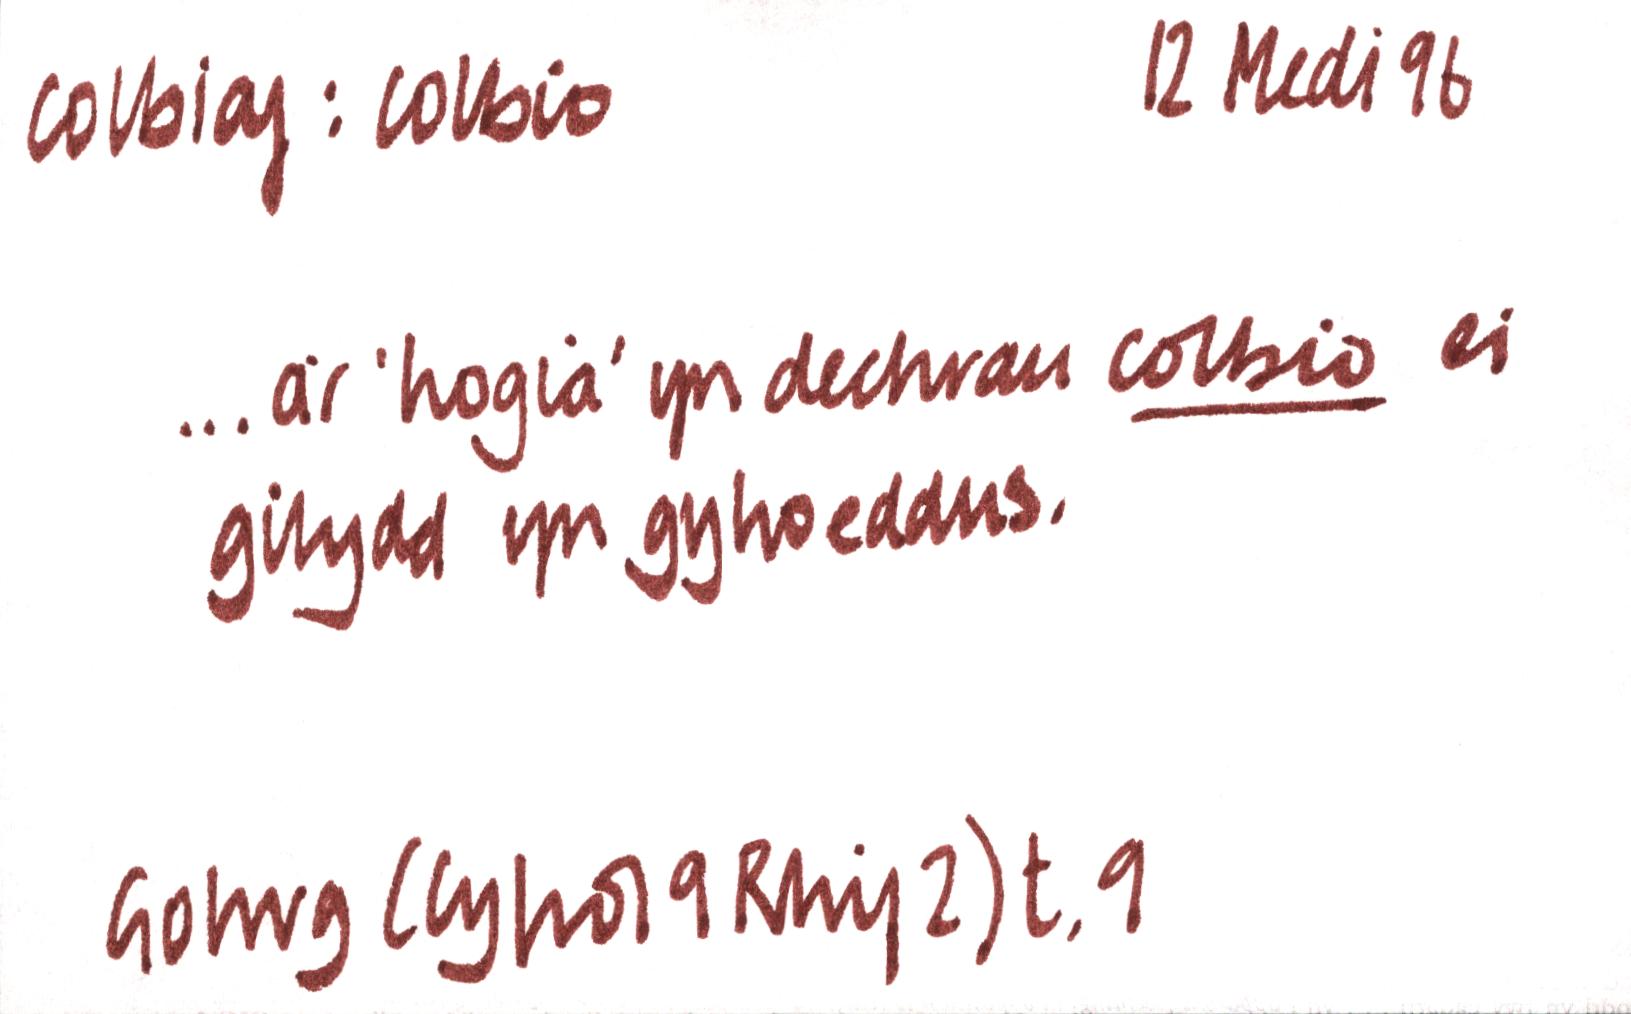 colbiaf : colbio 12 Medi 96
... a'r 'hogia' yn dechrau colbio ei
gilydd yn gyhoeddus.
Golwg (Cyfrol 9 Rhif 2) t. 9